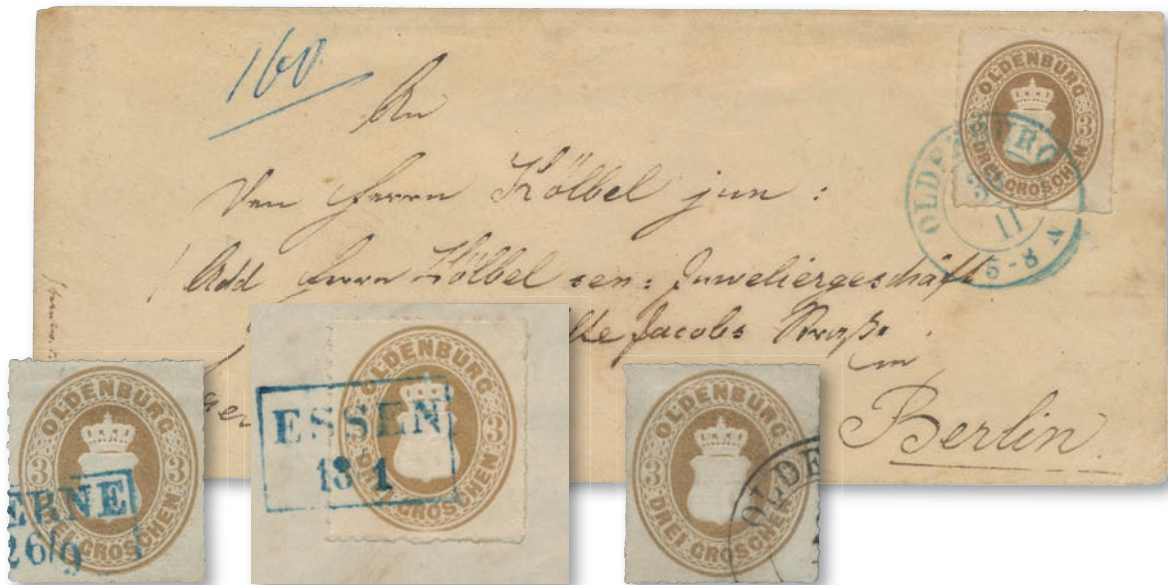 160
An
den Herrn Kölbel jun:
Add Herrn Kölbel sen: Juweliergeschäft
Alte Jacobs Straße
in
Berlin.
OLDENBURG
3 3
DREI GROSCHEN
OLDENBURG
11
5-8 N
OLDENBURG
3 3
DREI GROSCHEN
ERNE
26/9
OLDENBURG
3
DREI GROSCHEN
ESSEN
13 1
OLDENBURG
3 3
DREI GROSCHEN
OLDE